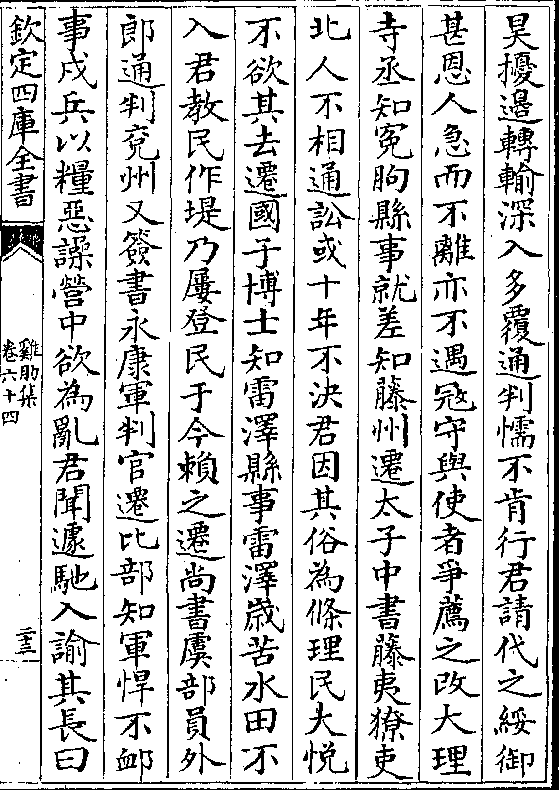 昊擾邊轉輸深入多覆通判懦不肯行君請代之綏御
甚恩人急而不離亦不遇冦守與使者爭薦之改大理
寺丞知冤朐縣事就差知藤州遷太子中書藤夷獠吏
北人不相通訟或十年不決君因其俗為條理民大悅
不欲其去遷國子博士知雷澤縣事雷澤歲苦水田不
入君教民作堤乃屢登民于今賴之遷尚書虞部員外
郎通判兖州又簽書永康軍判官遷比部知軍悍不䘏
事戍兵以糧惡譟營中欲為亂君聞遽馳入諭其長曰
欽定四庫全書
雞肋集
卷六十四
二十三